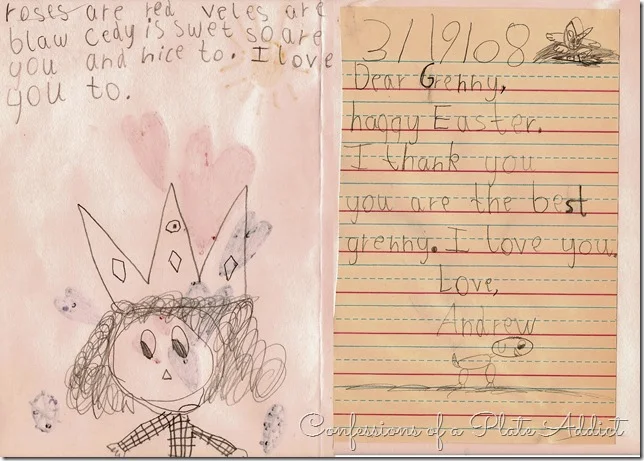 roses are red veles are
blaw Cedy is swet so are
you and nice to. I love
you to.
3/19/08
Dear Grenny,
haggy Easter.
I thank you
you are the best
grenny. I love you.
Love,
Andrew
Confessions of a Plate Addict